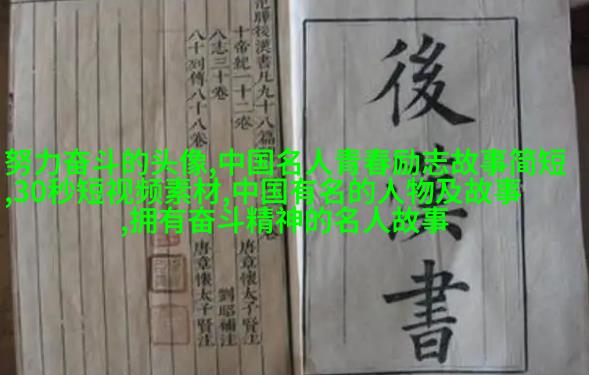 努力奋斗的头像,中国名人青春励志故事简短
,30秒短视频素材,中国有名的人物及故事
,拥有奋斗精神的名人故事
後漢書
范曄後漢書凡九十八篇
十帝紀一十二卷 唐章懷太子賢注
八志三十卷 劉昭補注
八十列傳八十八卷 唐章懷太子賢注